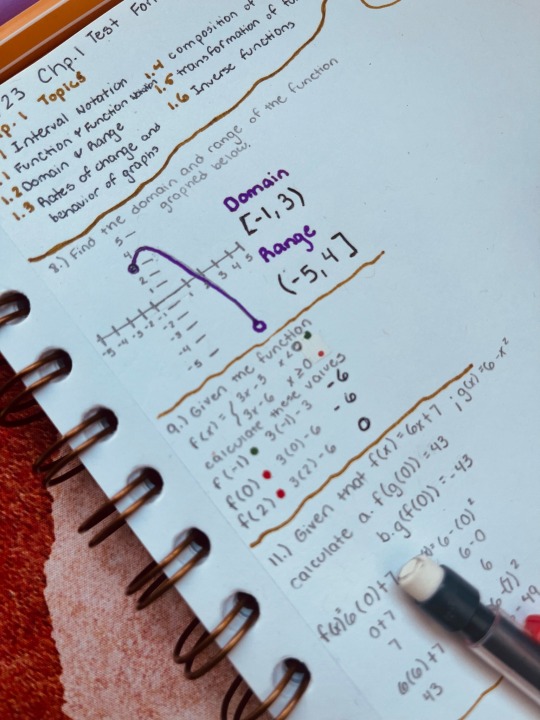 23 Chp. 1 Test For
p. 1 Topics
1 Interval Notation
.1 Function & Function Notation
1.2 Domain & Range
1.3 Rates of change and
behavior of graphs
1.4 composition of
1.5 transformation of fu
1.6 Inverse functions
8.) Find the domain and range of the function
graphed below.
Domain
[-1, 3)
Range
(-5, 4]
9.) Given the function
f(x) = { 3x-3 x<0
3x-6 x≥0
calculate these values
f(-1) 3(-1)-3 -6
f(0) 3(0)-6 -6
f(2) 3(2)-6 0
11.) Given that f(x)=6x+7 ; g(x)=6-x²
calculate a. f(g(0))=43
b. g(f(0))=-43
6-(0)²
6-0
6
6(0)+7
0+7
7
6(6)+7
43